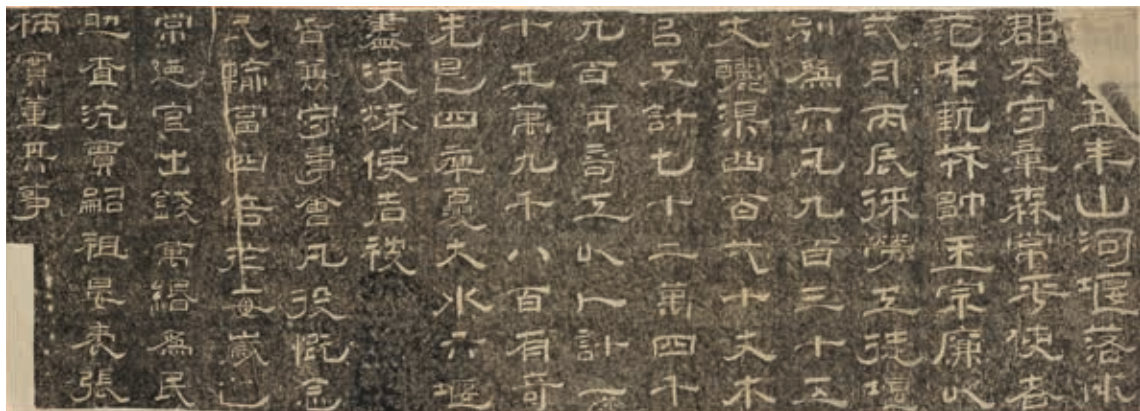 五年山河堰落成
郡太守章森常平使者
范中藝帥王宗廉以
弍月丙辰徠勞工徒堰
別為六凡九百三十五
丈釃渠四百弌十丈木
以工計七十二萬四千
九百有奇工以人計一
十五萬九千八百有奇
先是四年夏大水六堰
盡決秋使者被
旨兼守事會凡役慨念
民輸當四倍於每歲之
常迺官出錢萬緡為民
助查沆賈嗣祖晏袤張
柄實董其事